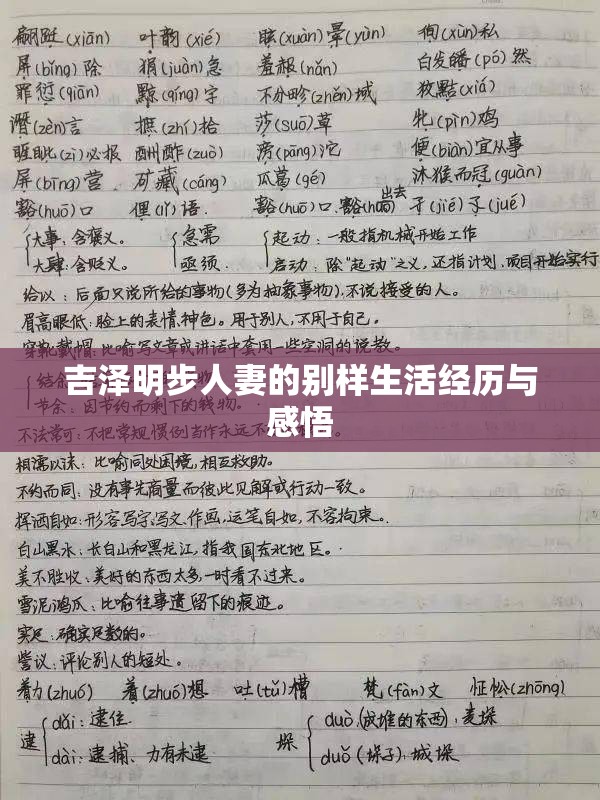 翩跹(xiān) 叶韵(xié) 眩(xuàn)晕(yùn) 徇(xùn)私
屏(bǐng)除 狷(juàn)急 羞赧(nǎn) 白发皤(pó)然
罪愆(qiān) 黥(qíng)字 不分畛(zhěn)域 狡黠(xiá)
谮(zèn)言 摭(zhí)拾 莎(suō)草 牝(pìn)鸡
睚眦(zì)必报 酬酢(zuò) 滂(pāng)沱 便(biàn)宜从事
屏(bīng)营 矿藏(cáng) 瓜葛(gé) 沐猴而冠(guàn)
豁(huō)口 俚(lǐ)语 豁(huō)口、豁(huō)出去 孑(jié)孓(jué)
大事：含褒义。 急需 起动：一般指机械开始工作
大肆：含贬义。 亟须 启动：除"起动"之义，还指计划、项目开始实行
给以：后面只说所给的事物(多为抽象事物)，不说接受的人。
眉高眼低：脸上的表情、神色。用于别人，不用于自己。
穿靴戴帽：比喻写文章或讲话中套用一些空洞的说教。
吉泽明步人妻的别样生活经历与
感悟
结余
节余：因节约而剩下的钱物。
不法常可：不把常规、惯例当作永远不
相濡以沫：比喻同处困境，相互救助。
不约而同：没有事先商量而彼此见解或行动一致。
挥洒自如：形容写字、写文、作画，运笔自如，不容拘束。
白山黑水：长白山和黑龙江，指我国东北地区。
美不胜收：美好的东西太多，一时看不过来。
雪泥鸿爪：比喻往事遗留下的痕迹。
实足：确实足数的。
訾议：评论别人的短处。
着力(zhuó) 着(zhuó)想 吐(tǔ)槽 梵(fàn)文 怔忪(zhōng)
逮 dǎi：逮住 垛 duò：(成堆的东西)，麦垛
dài：逮捕、力有未逮 duǒ(垛子)：城垛